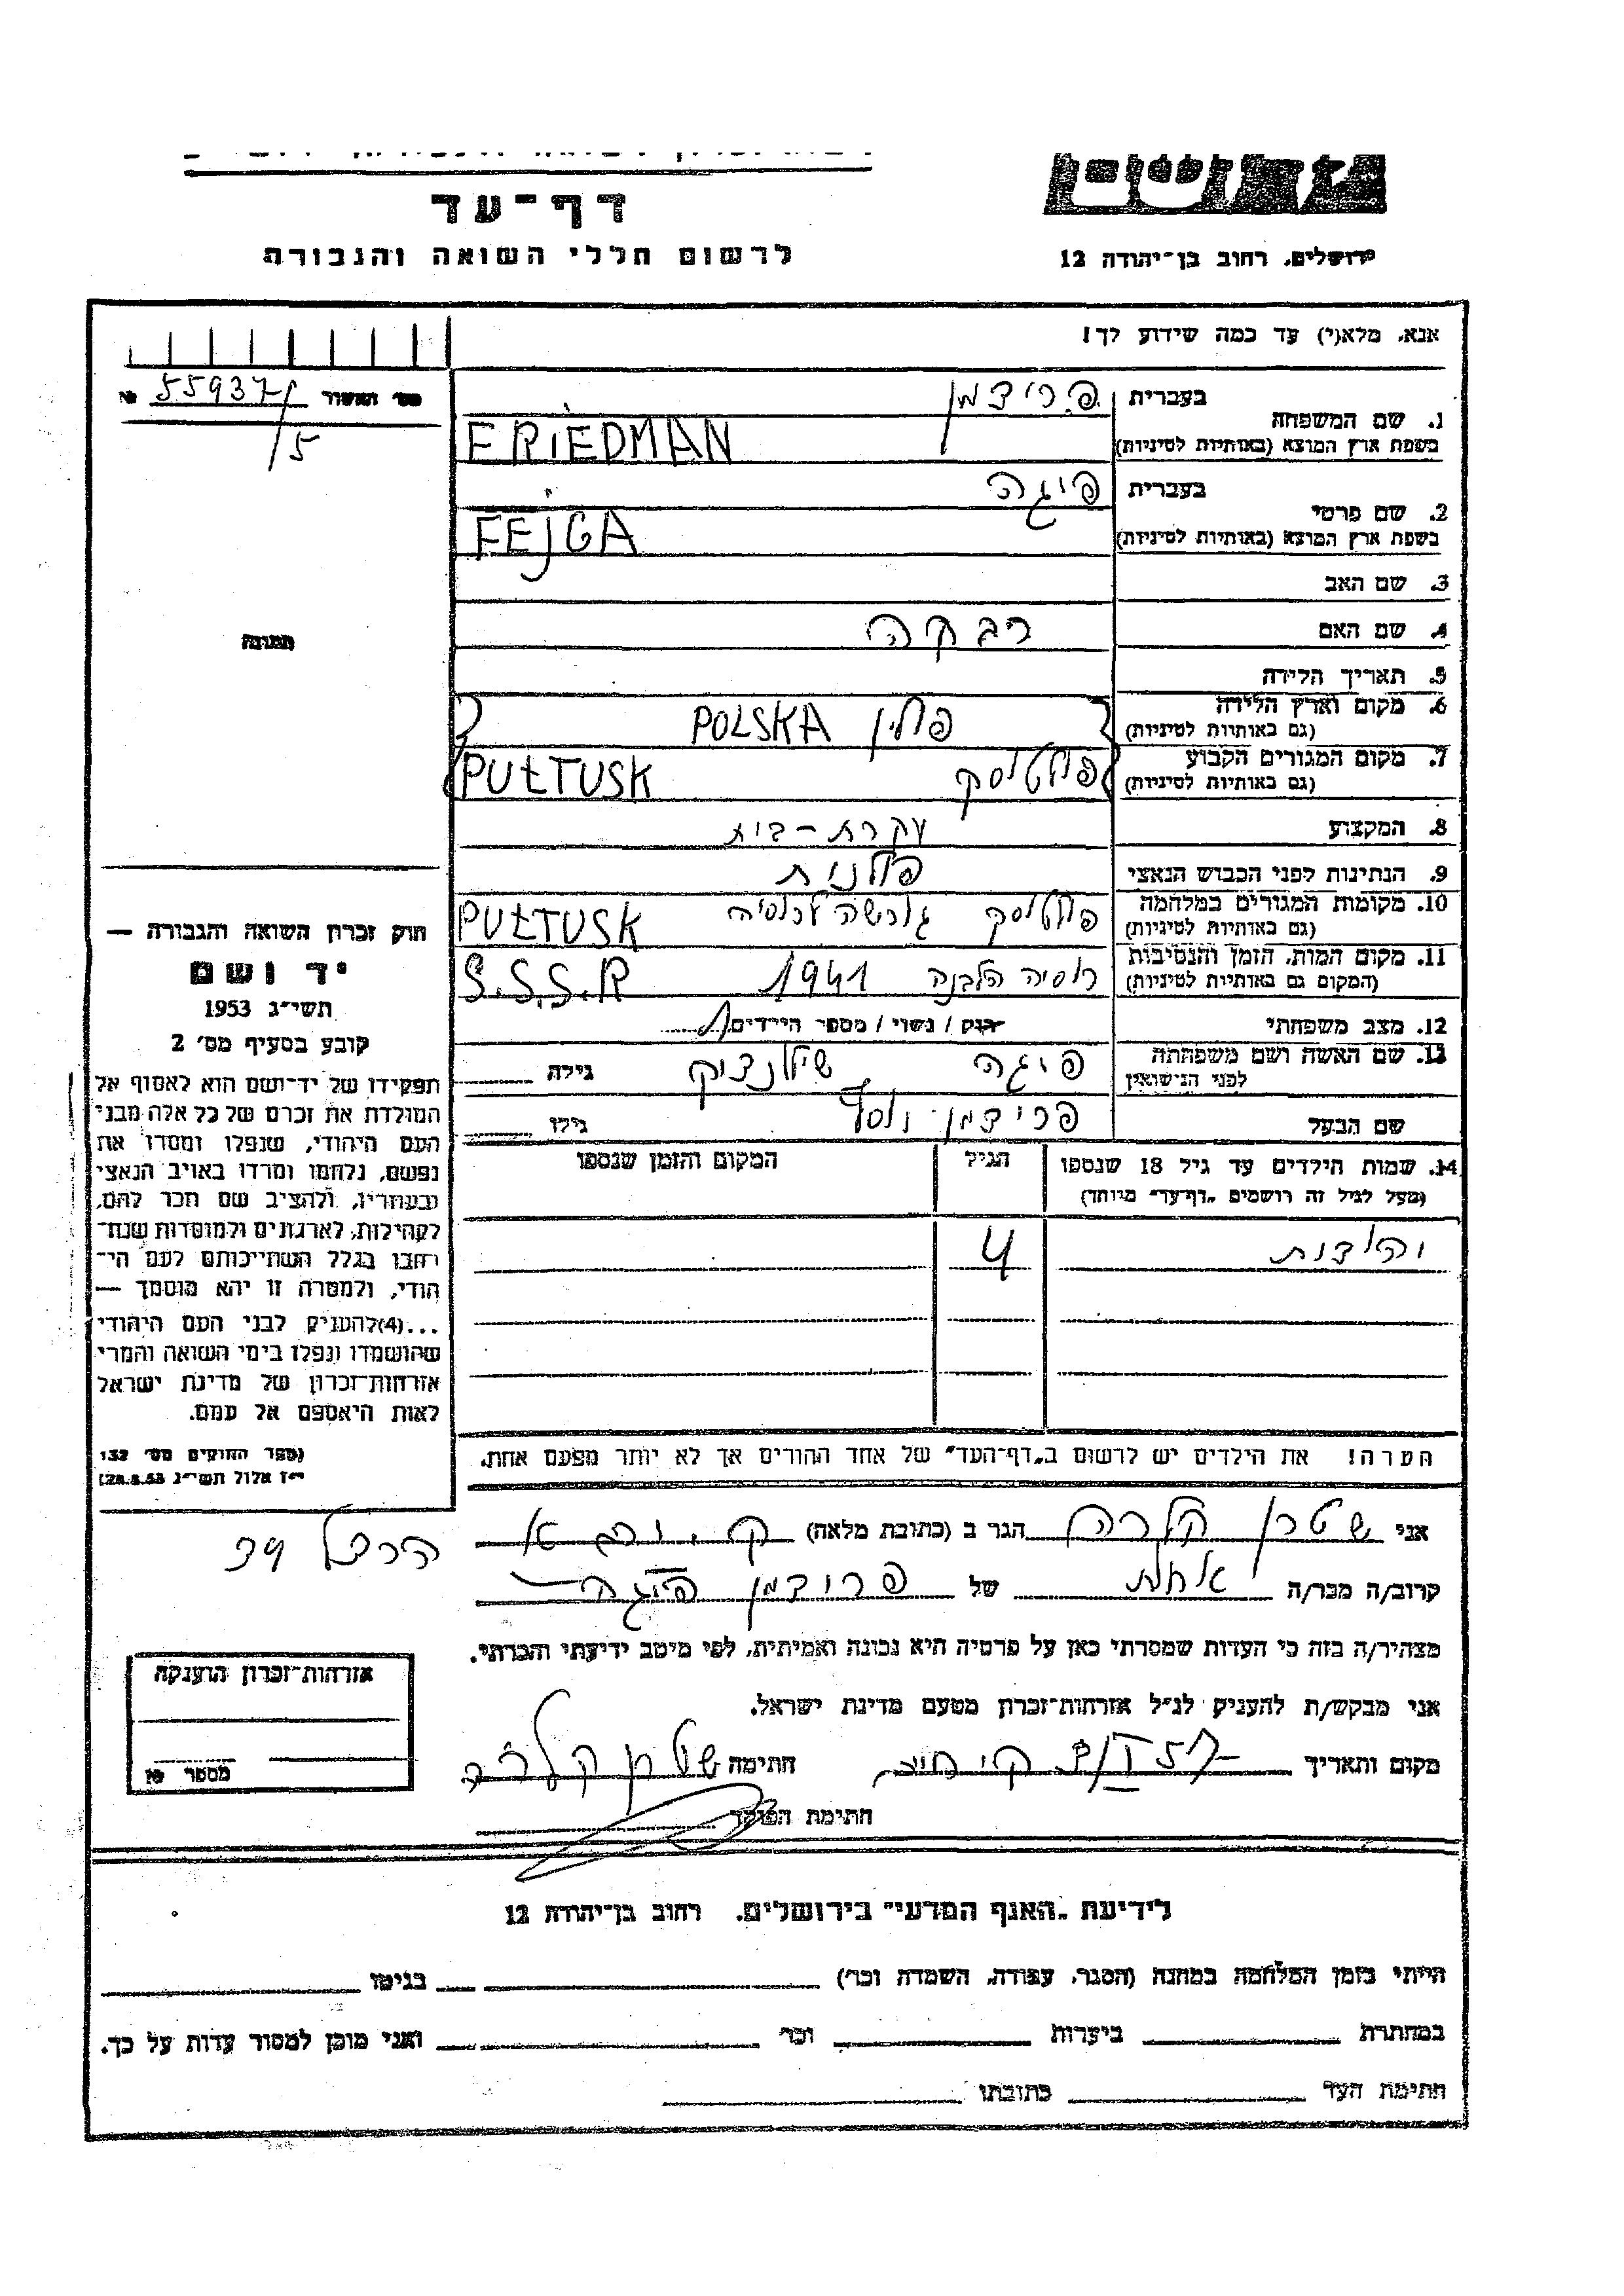 דף-עד
לרשום חללי השואה והגבורה
ירושלים, רחוב בן-יהודה 12
אנא, מלא(י) עד כמה שידוע לך!
מס' האשור 55937/5 №
1. שם המשפחה
בעברית פרידמן
בשפת ארץ המוצא (באותיות לטיניות) FRIEDMAN
2. שם פרטי
בעברית פיגה
בשפת ארץ המוצא (באותיות לטיניות) FEJGA
3. שם האב
4. שם האם רבקה
תמונה
5. תאריך הלידה
6. מקום וארץ הלידה פולין POLSKA
(גם באותיות לטיניות)
7. מקום המגורים הקבוע פולטוסק PUŁTUSK
(גם באותיות לטיניות)
8. המקצוע עקרת-בית
9. הנתינות לפני הכבוש הנאצי פולנית
10. מקומות המגורים במלחמה פולטוסק PUŁTUSK
(גם באותיות לטיניות)
11. מקום המות, הזמן והנסיבות רוסיה הלבנה 1941 S.S.S.R
(המקום גם באותיות לטיניות)
12. מצב משפחתי רווק / נשוי / מספר הילדים 1
13. שם האשה ושם משפחתה פיגה גילה
לפני הנישואין
שם הבעל פרידמן יוסף גילו
14. שמות הילדים עד גיל 18 שנספו הגיל המקום והזמן שנספו
(מעל לגיל זה רושמים "דף-עד" מיוחד)
4
הערה! את הילדים יש לרשום ב"דף-העד" של אחד ההורים אך לא יותר מפעם אחת.
חוק זכרון השואה והגבורה —
יד ושם
תשי"ג 1953
קובע בסעיף מס' 2
תפקידו של יד-ושם הוא לאסוף אל
המולדת את זכרם של כל אלה מבני
העם היהודי, שנפלו ומסרו את
נפשם, נלחמו ומרדו באויב הנאצי
ובעוזריו, ולהציב שם וזכר להם,
לקהילות, לארגונים ולמוסדות שנח-
רבו בגלל השתייכותם לעם הי-
הודי, ולמטרה זו יהא מוסמך —
...(4) להעניק לבני העם היהודי
שהושמדו ונפלו בימי השואה והמרי
אזרחות-זכרון של מדינת ישראל
לאות היאספם אל עמם.
(ספר החוקים מס' 132
י"ז אלול תשי"ג 28.8.53)
אני שטרן קלרה הגר ב (כתובת מלאה) ק.
הרצל 39
קרוב/ה מכר/ה אחות של פרידמן פיגה
מצהיר/ה בזה כי העדות שמסרתי כאן על פרטיה היא נכונה ואמיתית, לפי מיטב ידיעתי והכרתי.
אני מבקש/ת להעניק לנ"ל אזרחות-זכרון מטעם מדינת ישראל.
מקום ותאריך חתימה שטרן קלרה
חתימת הפוקד
אזרחות-זכרון הוענקה
מספר №
לידיעת "האגף המדעי" בירושלים, רחוב בן-יהודה 12
הייתי בזמן המלחמה במחנה (הסגר, עבודה, השמדה וכו') בגיטו
במחתרת ביערות וכו' ואני מוכן למסור עדות על כך.
חתימת העד כתובתו